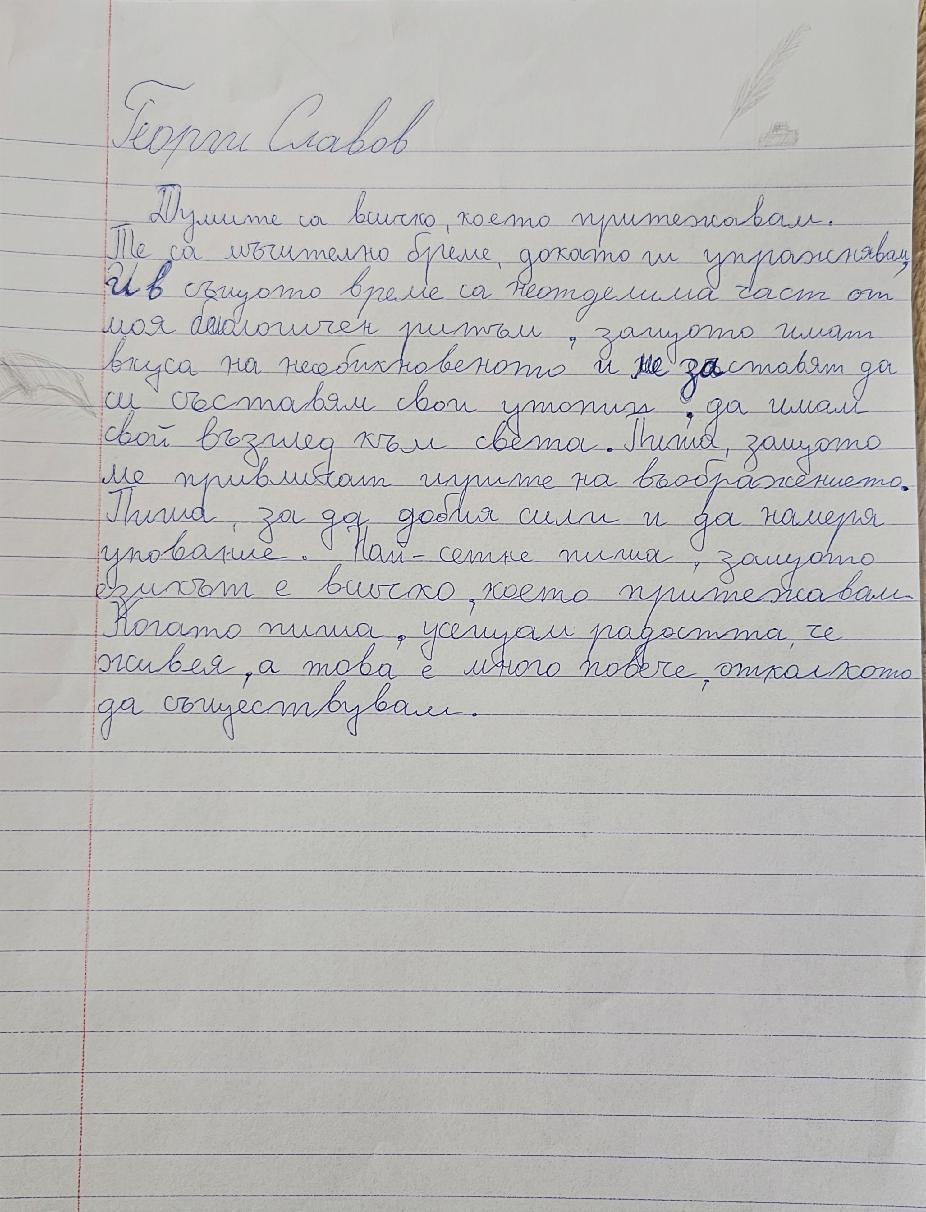 Георги Славов
Думите са всичко, което притежавам.
Те са мъчително бреме, докато ги упражнявам,
И в същото време са неотделима част от
моя биологичен ритъм, защото имат
вкуса на необикновеното и ме заставят да
си съставям свои утопии, да имам
свой възглед към света. Пиша, защото
ме привличат игрите на въображението.
Пиша, за да добия сили и да намеря
упование. Най-сетне пиша, защото
езикът е всичко, което притежавам.
Когато пиша, усещам радостта, че
живея, а това е много повече, отколкото
да съществувам.